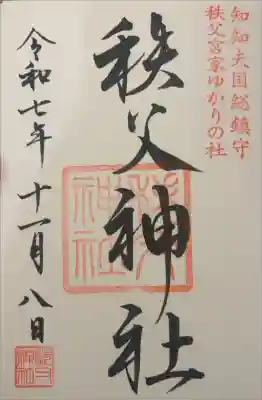 知知夫国総鎮守
秩父宮家ゆかりの社
秩父神社
令和七年十一月八日
秩父
神社